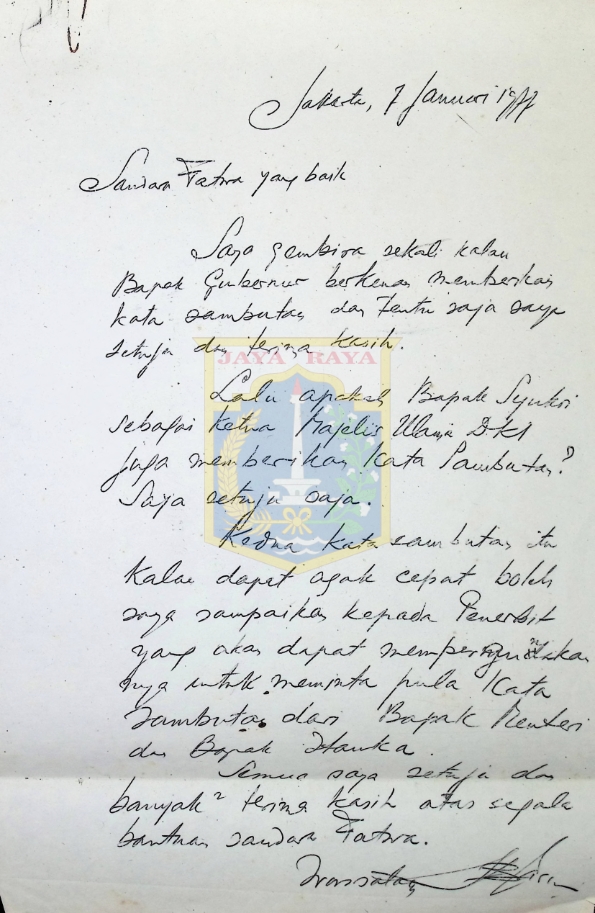 Jakarta, 7 Januari 1977
Saudara Fatwa yang baik
Saya gembira sekali kalau
Bapak Gubernur berkenan memberikan
kata sambutan dan tentu saja saya
setuju dan terima kasih.
JAYA RAYA
Lalu apakah Bapak Syukri
sebagai ketua Majelis Ulama DKI
juga memberikan Kata Sambutan?
Saya setuju saja.
Kedua kata sambutan itu
kalau dapat agak cepat boleh
saya sampaikan kepada Penerbit
yang akan dapat mempergunakan
nya untuk meminta pula Kata
Sambutan dari Bapak Menteri
dan Bapak Hamka.
Semua saya setuju dan
banyak² terima kasih atas segala
bantuan saudara Fatwa.
Wassalam